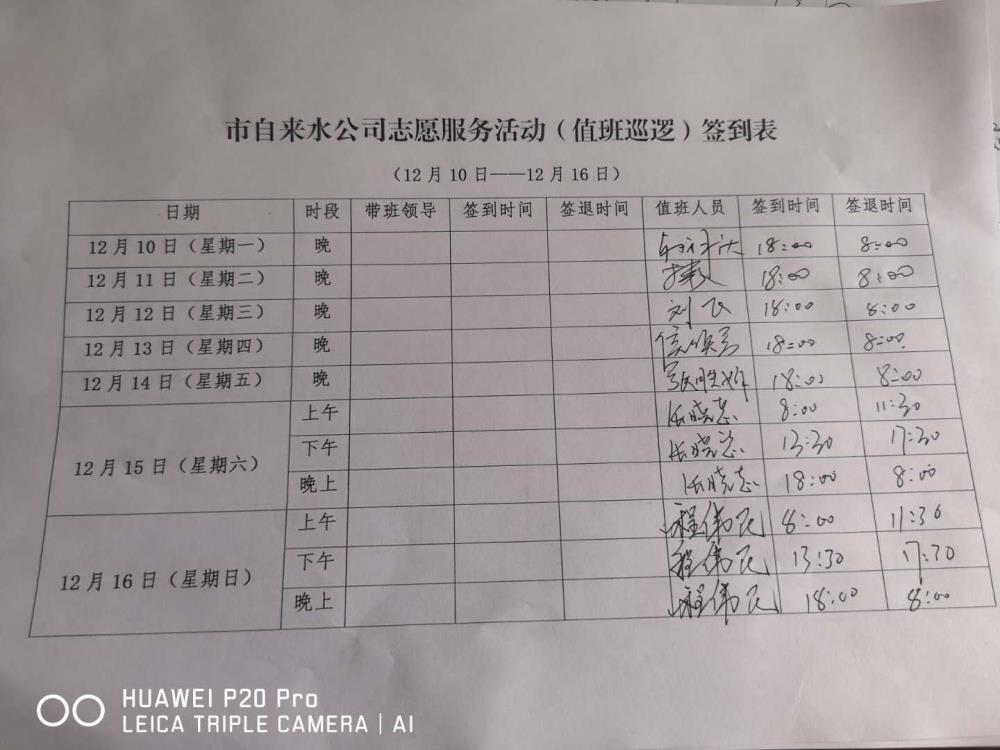 市自来水公司志愿服务活动（值班巡逻）签到表
（12月10日——12月16日）
日期 时段 带班领导 签到时间 签退时间 值班人员 签到时间 签退时间
12月10日（星期一） 晚 18:00 8:00
12月11日（星期二） 晚 18:00 8:00
12月12日（星期三） 晚 刘飞 18:00 8:00
12月13日（星期四） 晚 18:00 8:00
12月14日（星期五） 晚 18:00 8:00
12月15日（星期六） 上午 张晓志 8:00 11:30
下午 张晓志 13:30 17:30
晚上 张晓志 18:00 8:00
12月16日（星期日） 上午 程伟民 8:00 11:30
下午 程伟民 13:30 17:30
晚上 程伟民 18:00 8:00
HUAWEI P20 Pro
LEICA TRIPLE CAMERA | AI